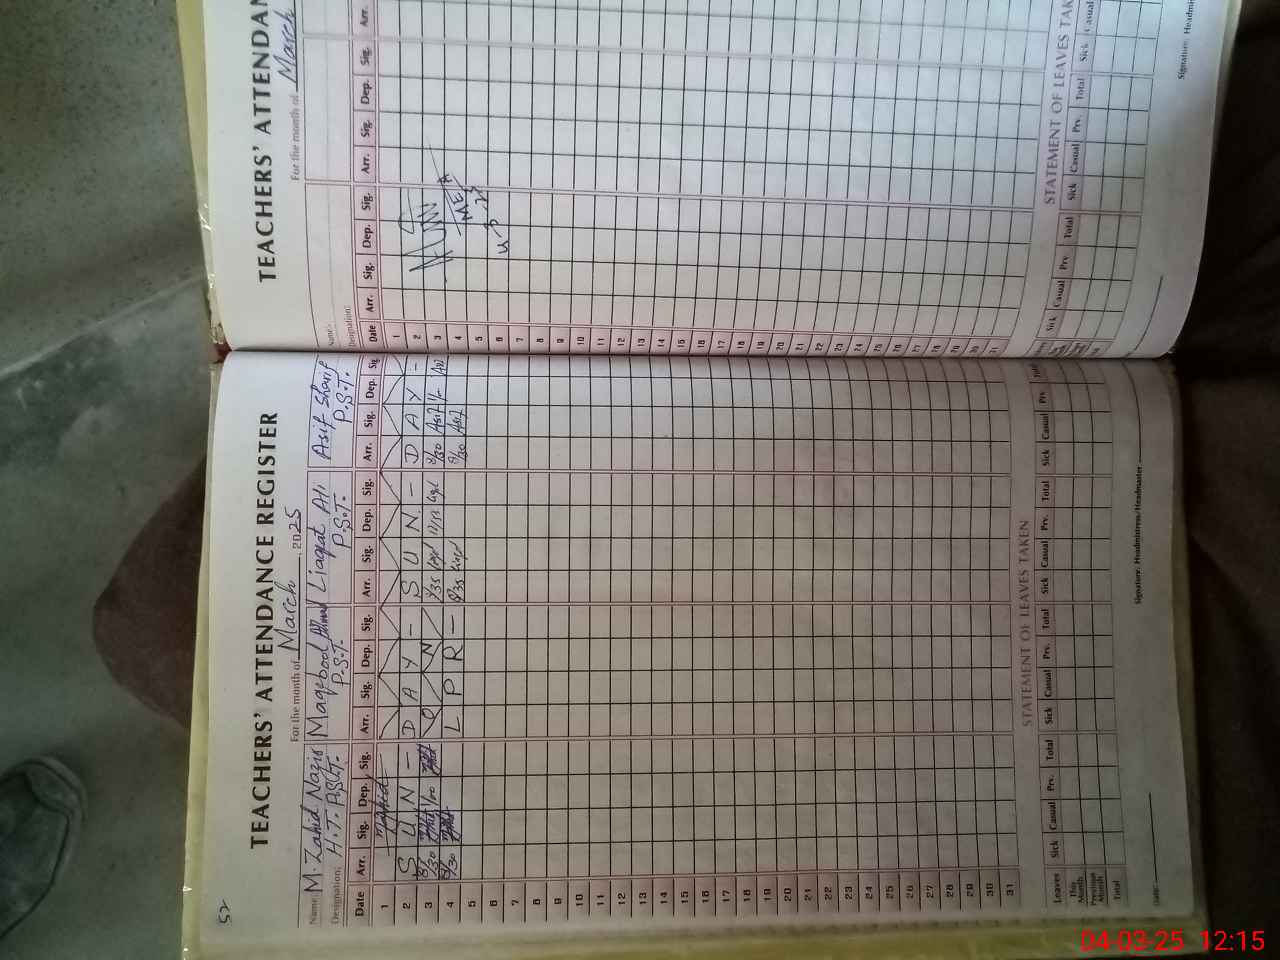 52
TEACHERS' ATTENDANCE REGISTER
For the month of March 2025
Name: M. Zahid Nazir Maqsood Ahmad Liaqat Ali Asif Sharif
Designation: H.T. P.S.T. P.S.T. P.S.T. P.S.T.
Date Arr. Sig. Dep. Sig. Arr. Sig. Dep. Sig. Arr. Sig. Dep. Sig. Arr. Sig. Dep. Sig
1 Zahid
2 S U N - D A Y - S U N - D A Y -
3 8/30 1/00 O N 8/35 8/30 Asif
4 8/30 L P R - 8/35 8/30 Asif
5
6
7
8
9
10
11
12
13
14
15
16
17
18
19
20
21
22
23
24
25
26
27
28
29
30
31
STATEMENT OF LEAVES TAKEN
Leaves Sick Casual Prv. Total Sick Casual Prv. Total Sick Casual Prv. Total Sick Casual Prv.
This Month
Previous Month
Total
Date:
Signature: Headmistress/Headmaster
TEACHERS' ATTENDAN
For the month of March
Name:
Designation:
Date Arr. Sig. Dep. Sig. Arr. Sig. Dep. Sig. Arr.
1
2
3
4
5
6
7
8
9
10
11
12
13
14
15
16
17
18
19
20
21
22
23
24
25
26
27
28
29
30
31
STATEMENT OF LEAVES TAK
Sick Casual Prv Total Sick Casual Prv. Total Sick Casual
Signature: Headmi
04-03-25 12:15